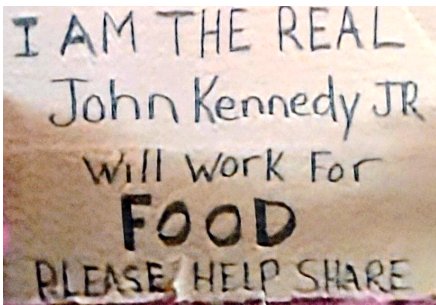 I AM THE REAL
John Kennedy JR
Will Work For
FOOD
PLEASE HELP SHARE